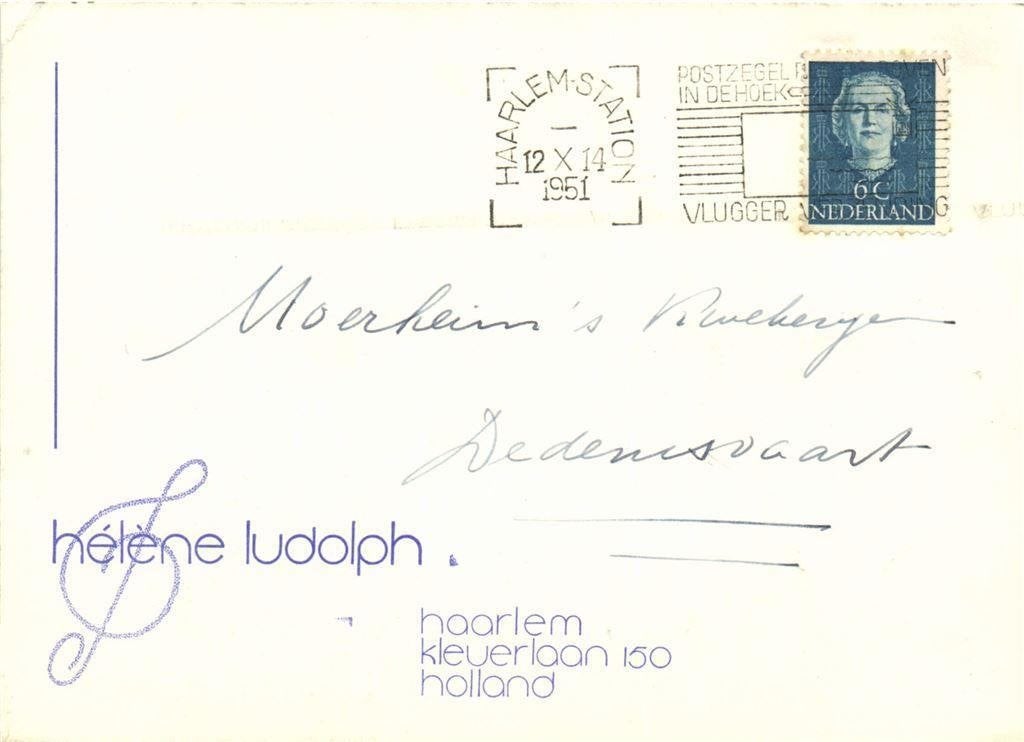 HAARLEM-STATION
12 X 14
1951
POSTZEGEL
IN DE HOEK
VLUGGER
6 C
NEDERLAND
Moerheim's
Dedemsvaart
hélène ludolph.
haarlem
kleverlaan 150
holland